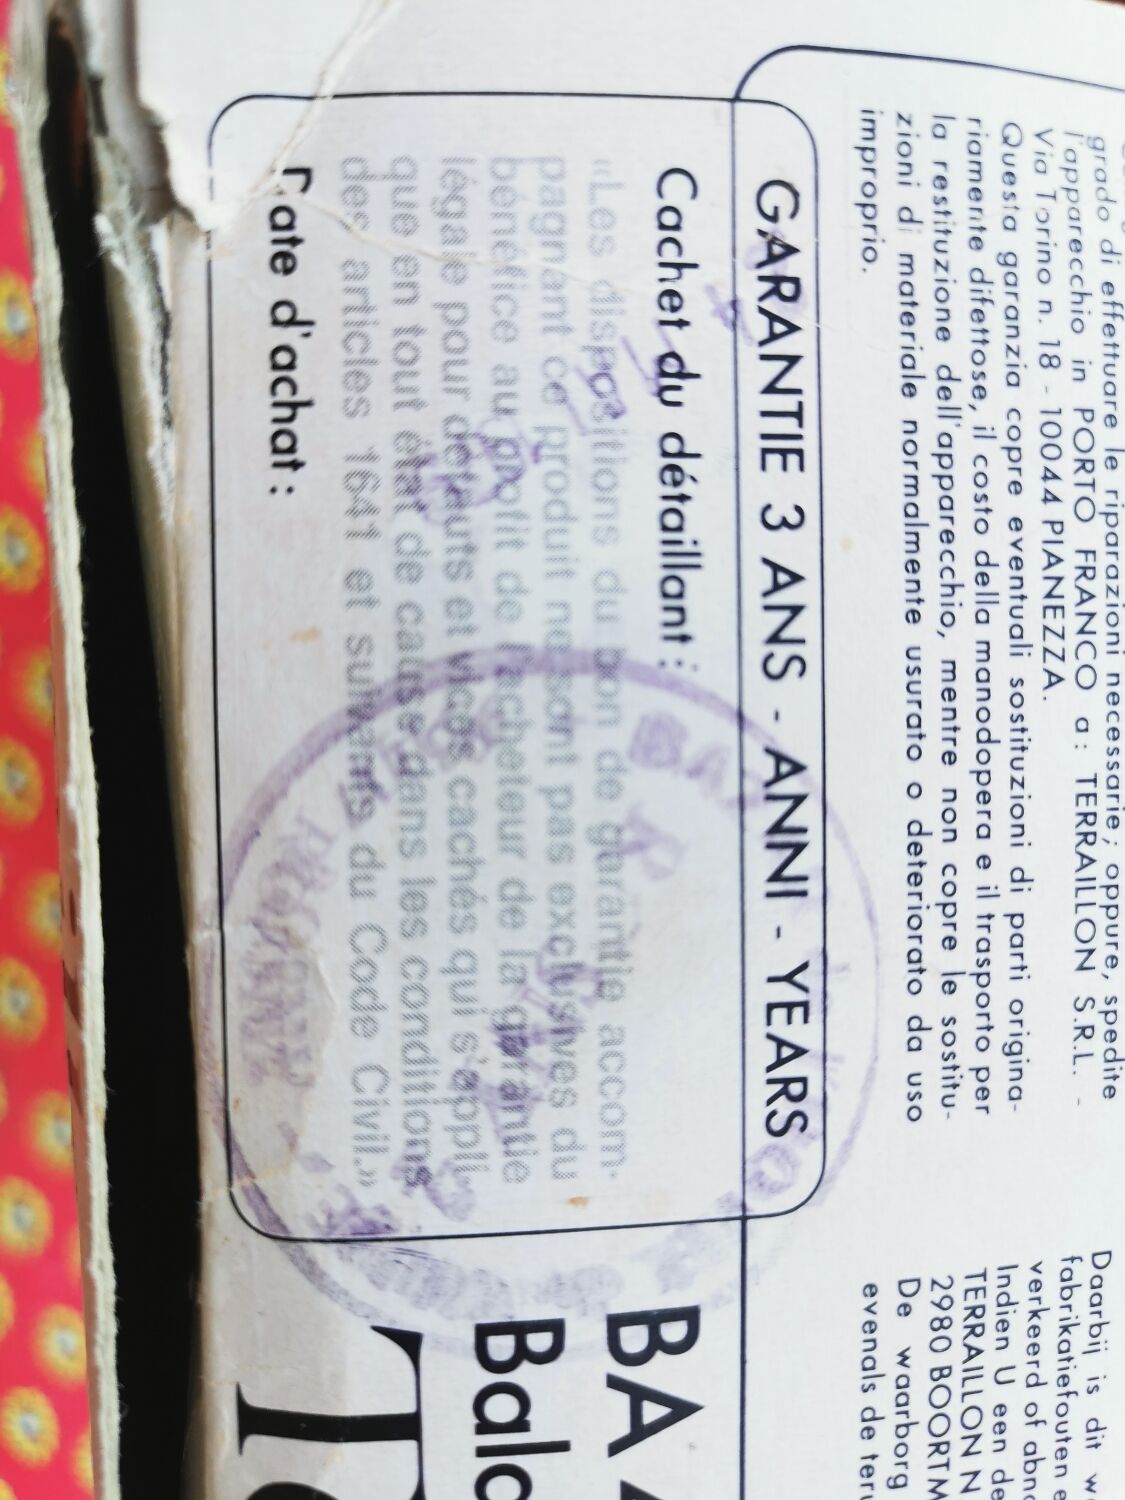 grado di effettuare le riparazioni necessarie; oppure, spedite
l'apparecchio in PORTO FRANCO a: TERRAILLON S.R.L. -
Via Torino n. 18 - 10044 PIANEZZA.
Questa garanzia copre eventuali sostituzioni di parti origina-
riamente difettose, il costo della manodopera e il trasporto per
la restituzione dell'apparecchio, mentre non copre le sostitu-
zioni di materiale normalmente usurato o deteriorato da uso
improprio.
GARANTIE 3 ANS - ANNI - YEARS
Cachet du détaillant :
«Les dispositions du bon de garantie accom-
pagnant ce produit ne sont pas exclusives du
bénéfice au profit de l'acheteur de la garantie
légale pour défauts et vices cachés qui s'appli-
que en tout état de cause dans les conditions
des articles 1641 et suivants du Code Civil.»
Date d'achat :
Daarbij is dit
fabrikatiefouten
verkeerd of
Indien U een
TERRAILLON
2980
De waarborg
evenals de
BA